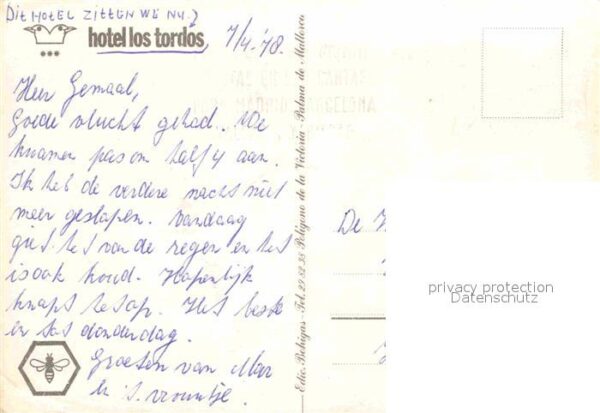 Dit HOTEL ZITTEN WE NU.
hotel los tordos
7/4-'78.
Heer Gemaal,
Goede vlucht gehad. We
kwamen pas om half 4 aan.
Ik heb de verdere nacht niet
meer geslapen. Vandaag
giet het van de regen en het
is ook koud. Hopenlijk
knapt het op. Het beste
en tot donderdag.
Groeten van
's vrouwtje.
De
Edic. Bohigas - Tel. 29 32 35 Poligono de la Victoria - Palma de Mallorca
privacy protection
Datenschutz